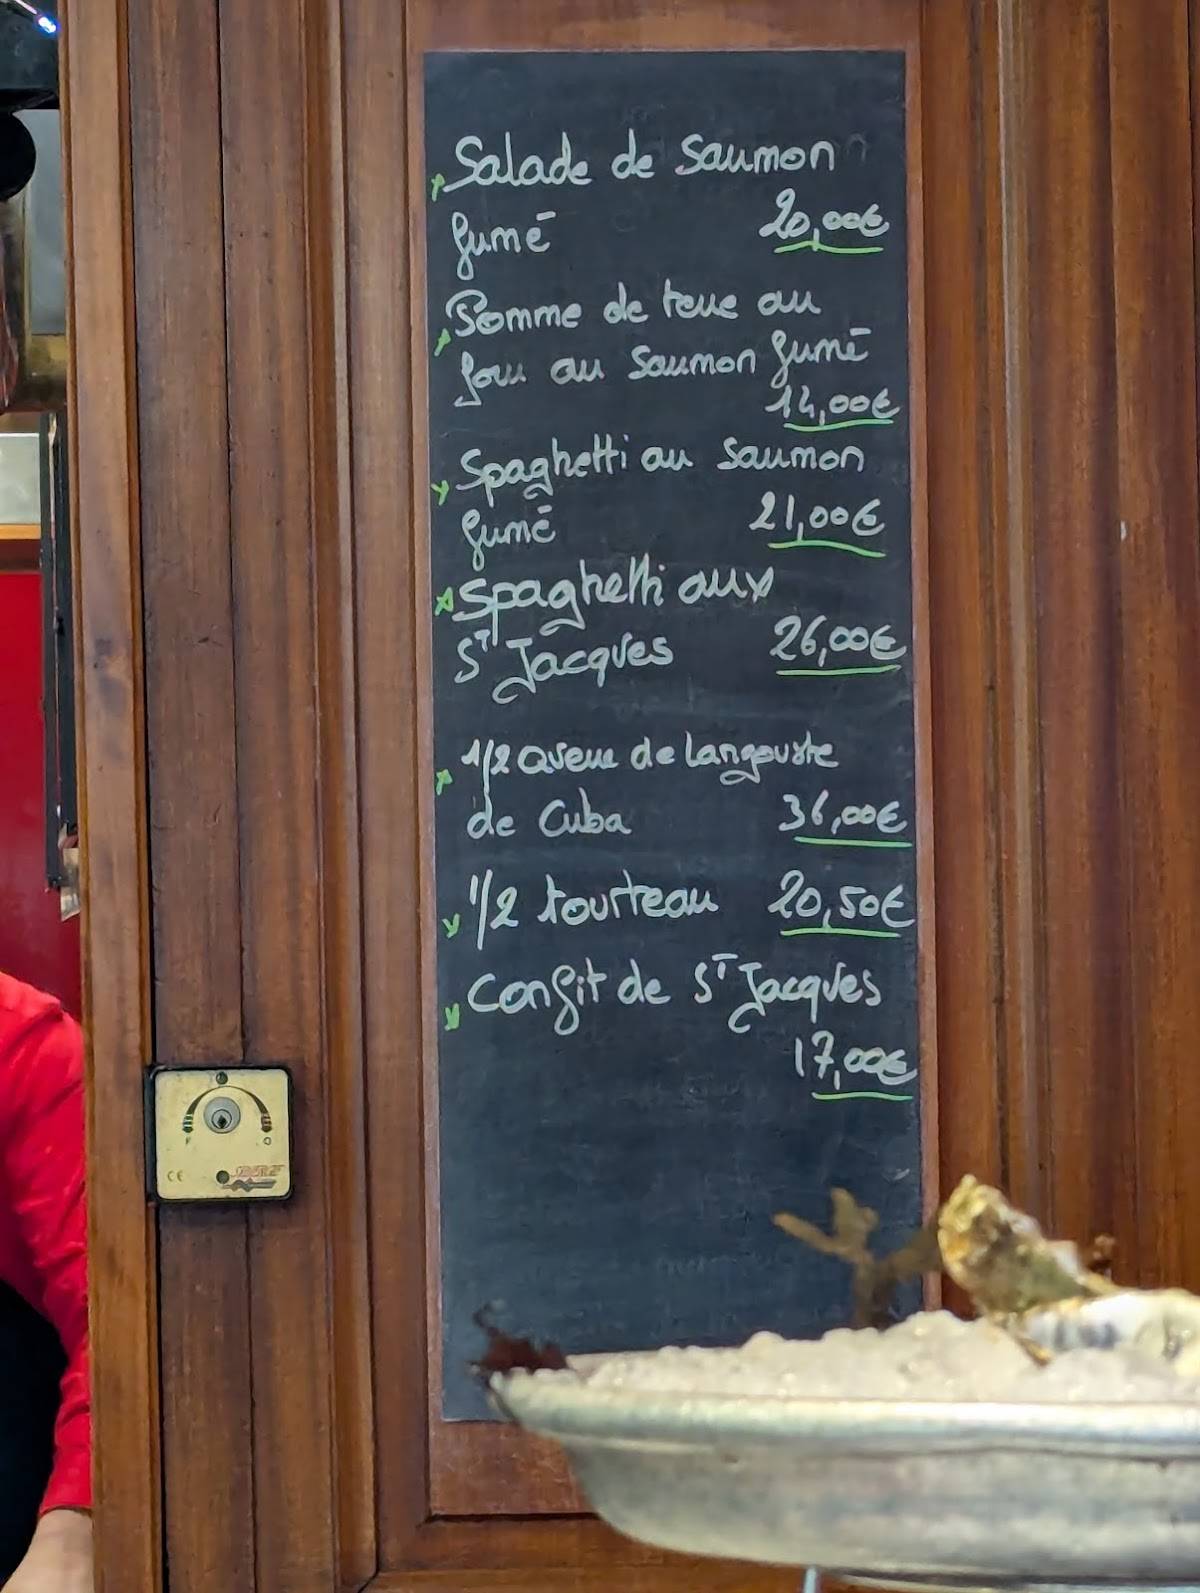 Salade de Saumon
fumé 20,00€
Pomme de terre au
four au saumon fumé
14,00€
Spaghetti au saumon
fumé 21,00€
Spaghetti aux
ST Jacques 26,00€
1/2 Queue de Langouste
de Cuba 36,00€
1/2 tourteau 20,50€
Confit de ST Jacques
17,00€
F O
CE